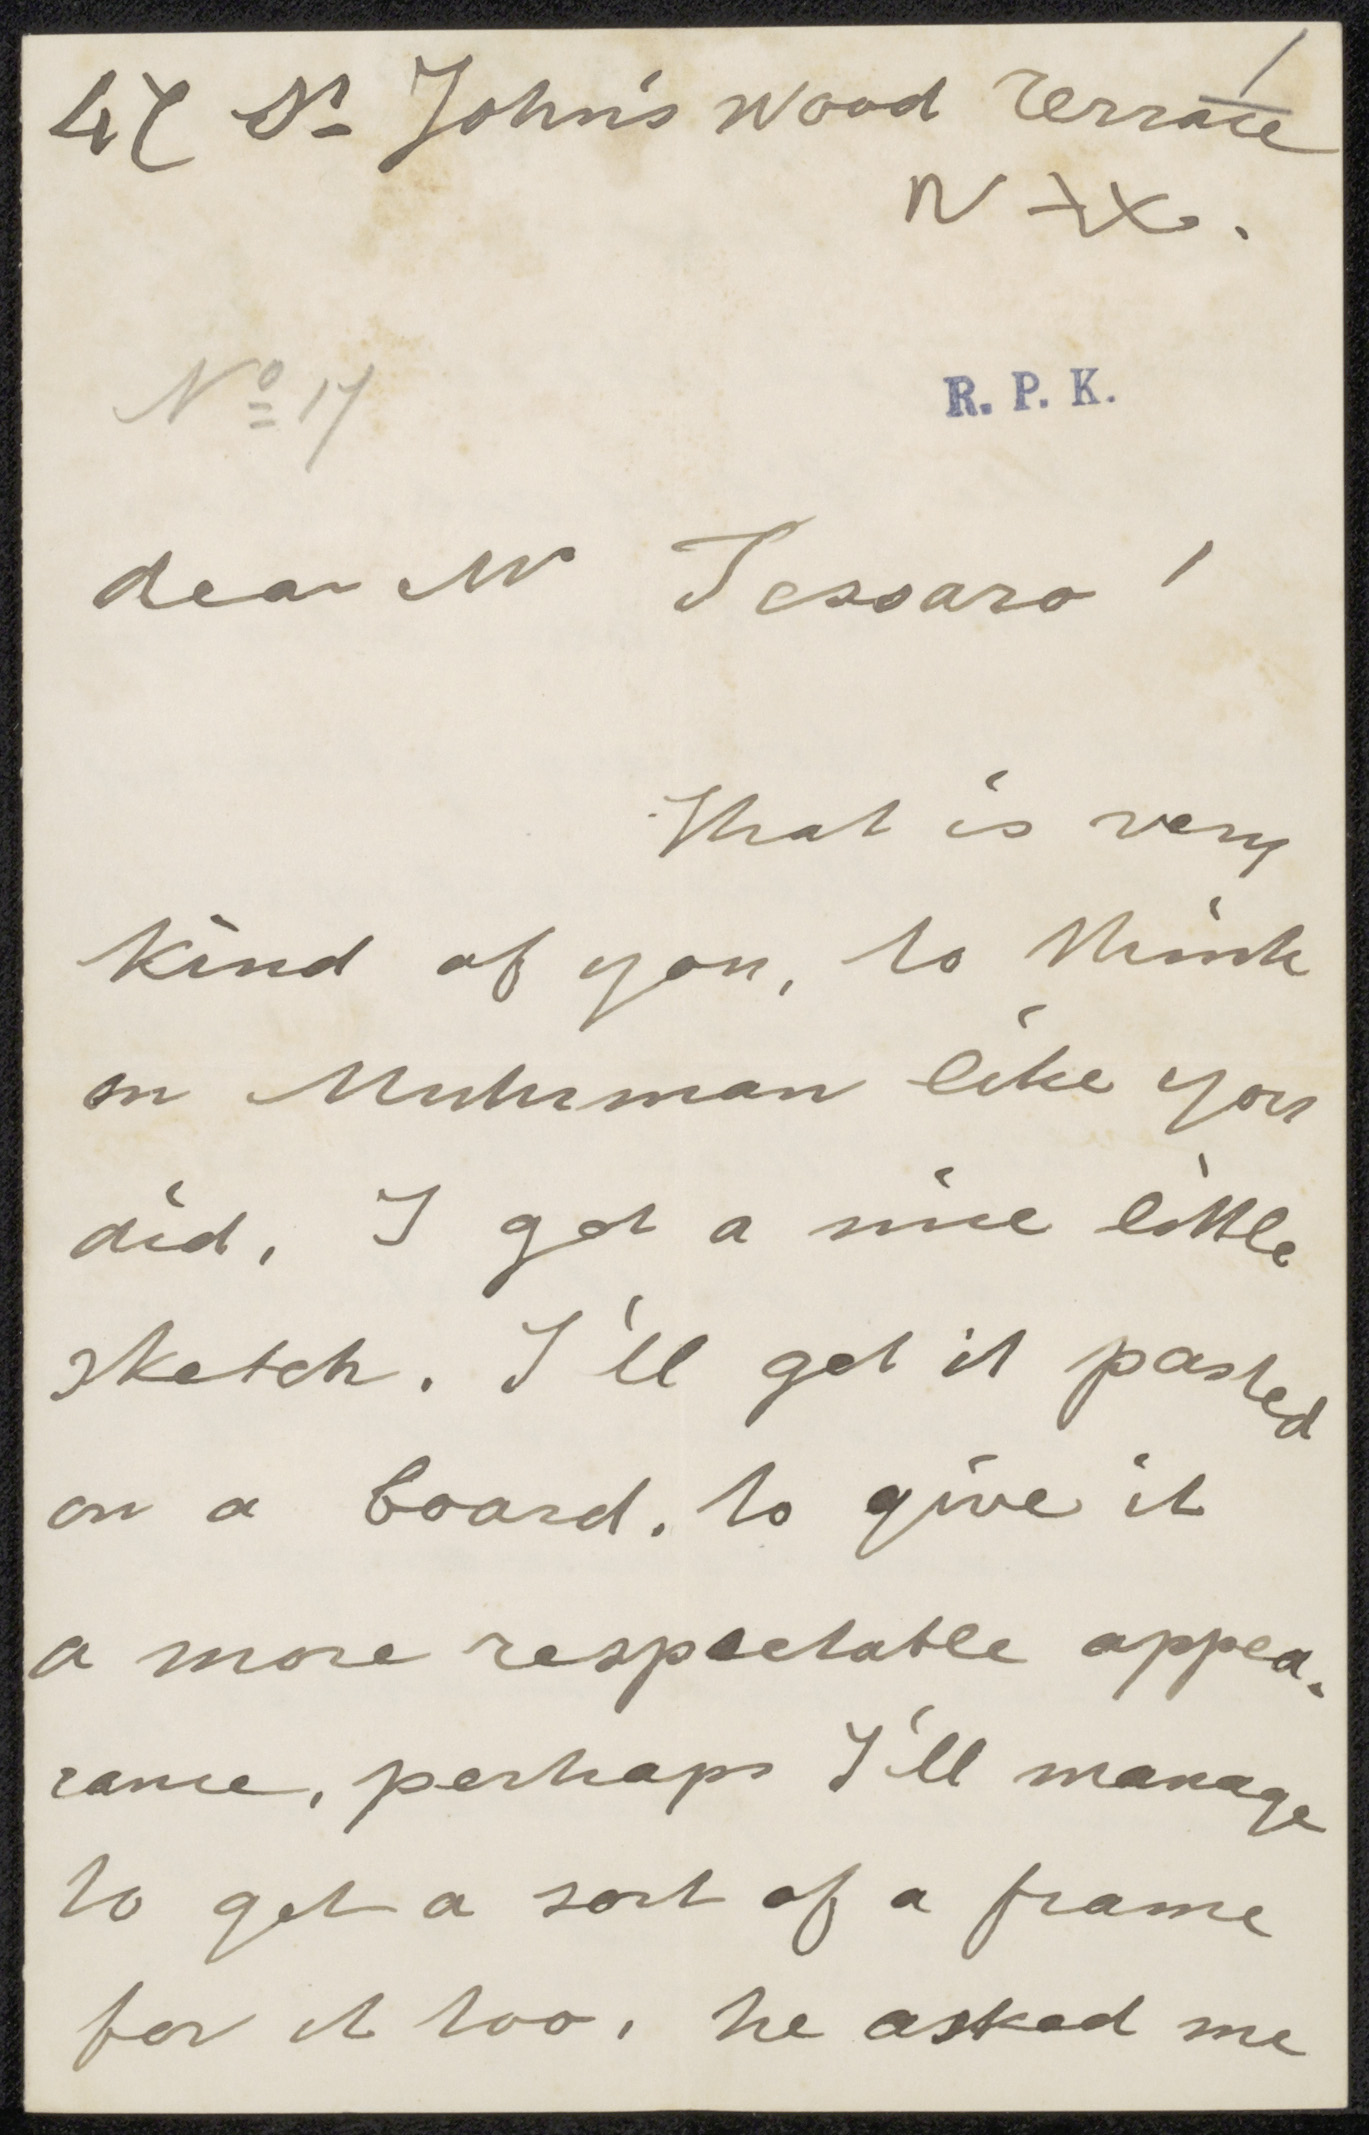 47 St John's Wood Terrace
N W.
No 17
R. P. K.
dear Mr Tessaro!
That is very
kind of you, to think
on Muhrman like you
did, I got a nice little
sketch. I'll get it pasted
on a board, to give it
a more respectable appea-
rance, perhaps I'll manage
to get a sort of a frame
for it too, he asked me